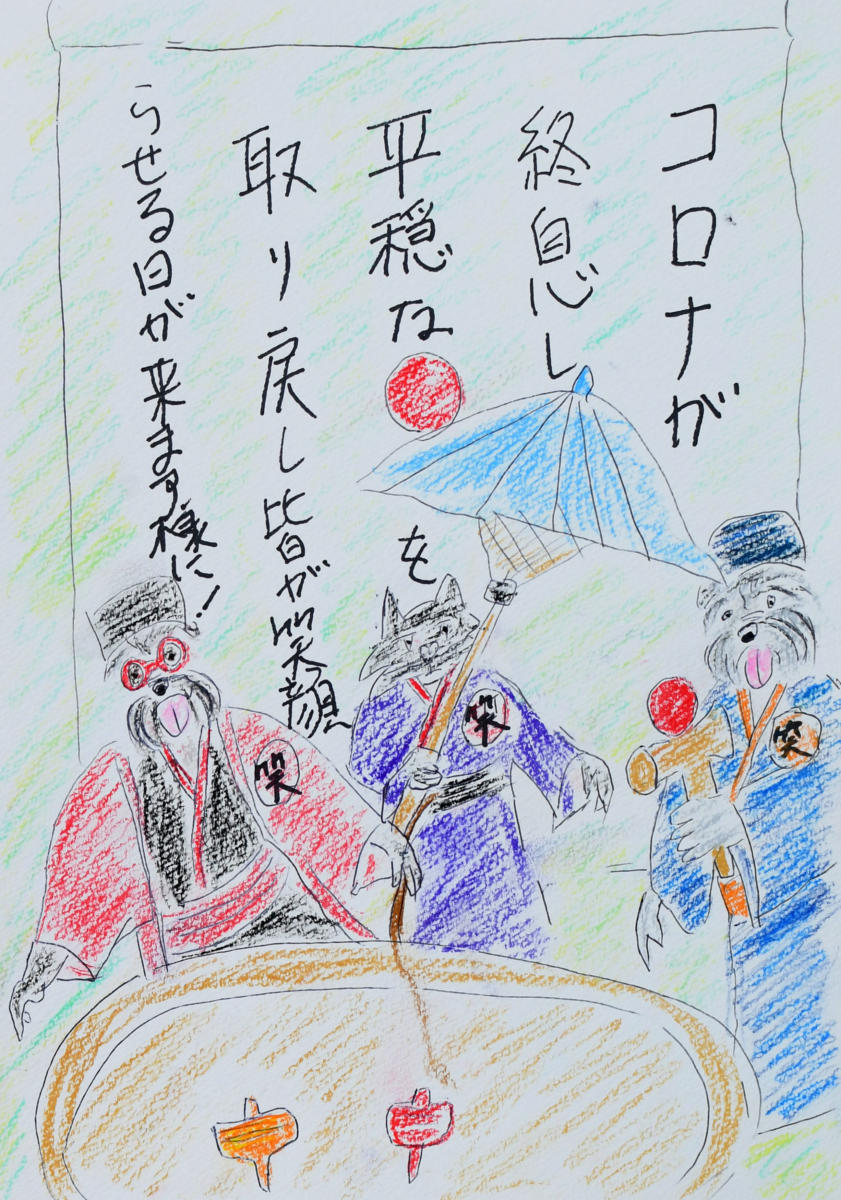 コロナが
終息し
平穏な
を
取り戻し皆が笑顔
らせる日が来ます様に!
笑
笑
笑